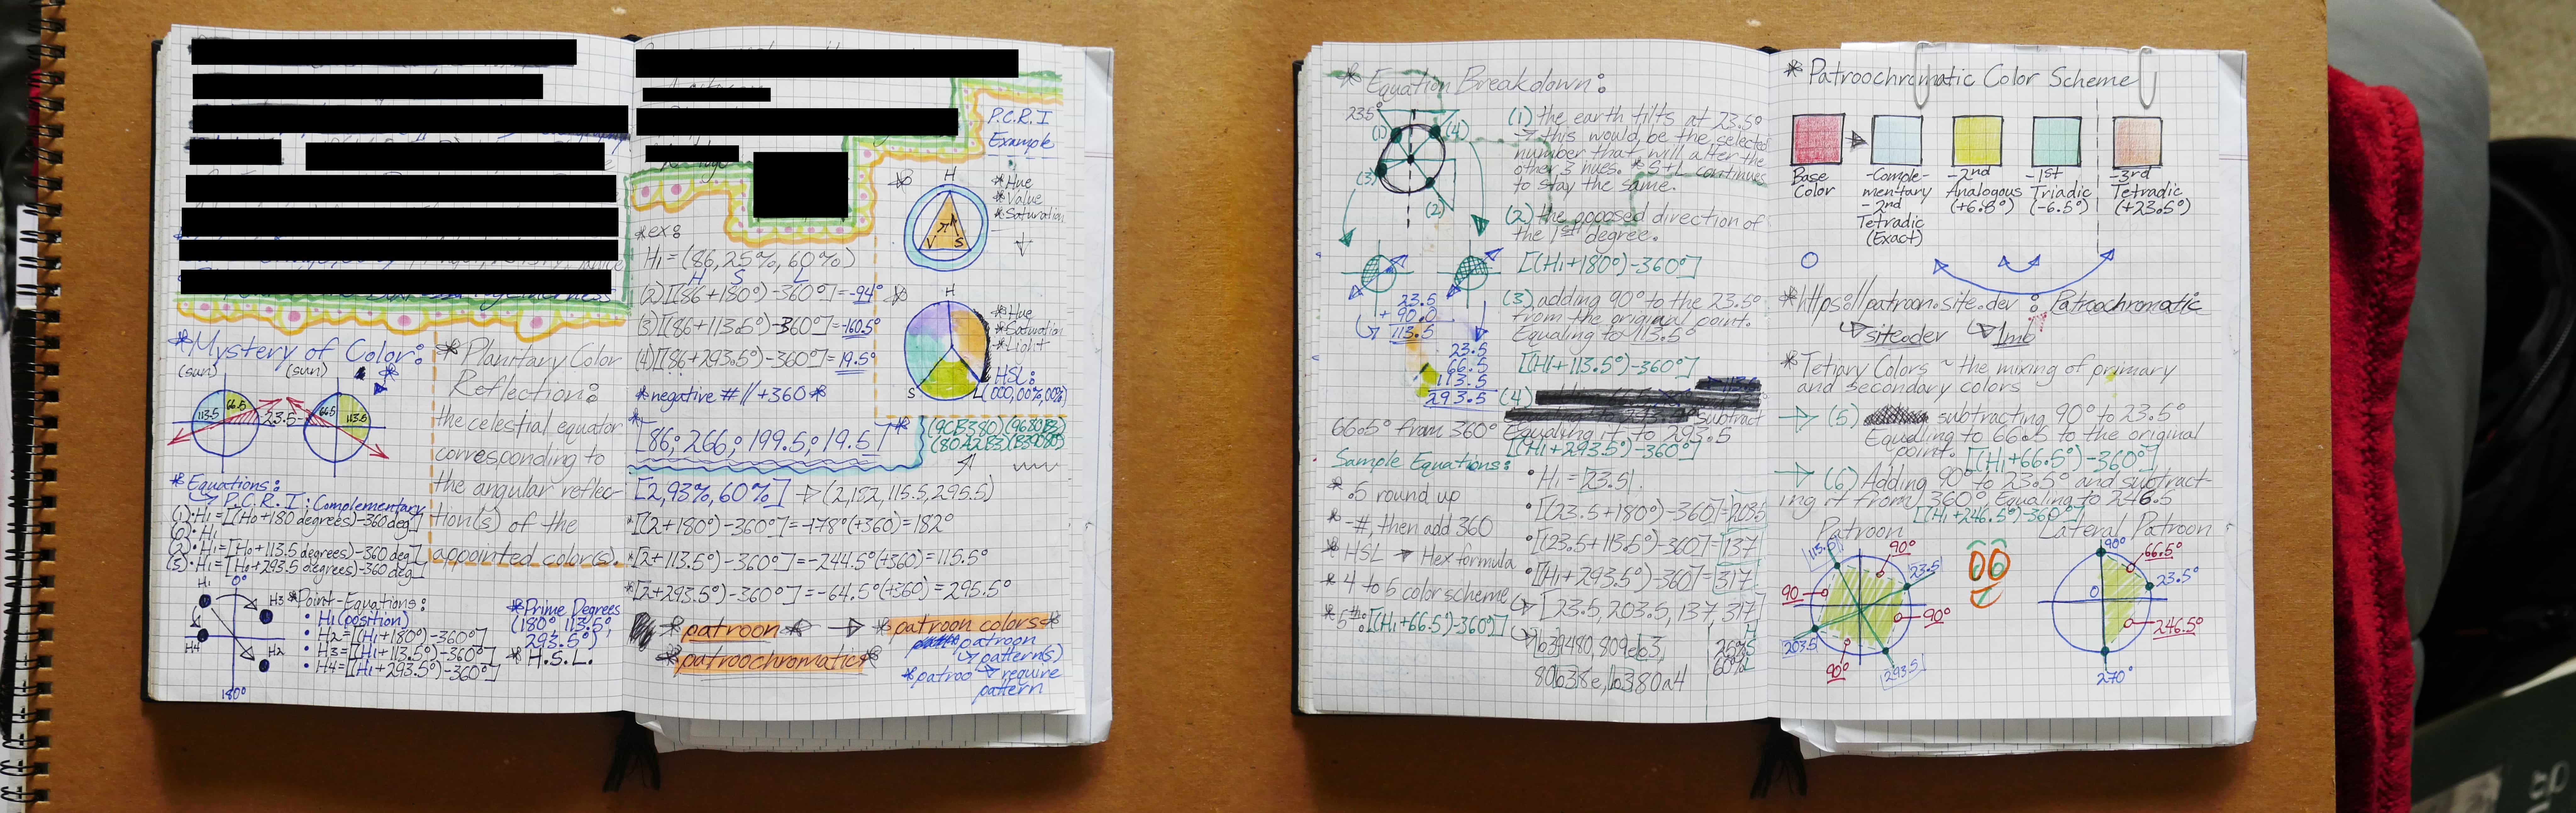 P.C.R.I
Example
*Hue
*Value
*Saturation
H
V
S
*ex:
H₁=(86,25%,60%)
H S L
(2)[(86+180°)-360°]=-94°
(3)[(86+113.5°)-360°]=-160.5°
(4)[(86+293.5°)-360°]=19.5°
*negative # // +360*
H
*Hue
*Saturation
*Light
S
L
HSL:
(000,00%,00%)
*[86;266;199.5;19.5]*
(9CB380)(9680B3)
(80A2B3)(B39080)
[2,93%,60%] → (2,182,115.5,295.5)
*[(2+180°)-360°]=-178°(+360)=182°
*[2+113.5°)-360°]=-244.5°(+360)=115.5°
*[2+293.5°)-360°]=-64.5°(+360)=295.5°
*patroon* → *patroon colors*
*patroochromatic*
patroon
pattern(s)
*patroo → require
pattern
*Mystery of Color:
(sun)
(sun)
113.5
66.5
23.5
66.5
113.5
*Planitary Color
Reflection:
the celestial equator
corresponding to
the angular reflec-
tion(s) of the
appointed color(s).
*Equations:
P.C.R.I; Complementary
(1)·H₁=[(H₀+180 degrees)-360deg]
·H₁
(2)·H₁=[H₀+113.5 degrees)-360deg]
(3)·H₁=[H₀+293.5 degrees)-360deg]
H₁
0°
H3
H4
H2
180°
*Point-Equations:
• H₁(position)
• H2=[(H₁+180°)-360°]
• H3=[(H₁+113.5°)-360°]
• H4=[(H₁+293.5°)-360°]
*Prime Degrees
(180°,113.5°,
293.5°)
*H.S.L.
*Equation Breakdown:
23.5°
(1)
(4)
(3)
(2)
(1) the earth tilts at 23.5°
→ this would be the selected
number that will alter the
other 3 hues. *S+L continues
to stay the same.
(2) the opposed direction of
the 1st degree.
[(H₁+180°)-360°]
(3) adding 90° to the 23.5°
from the original point.
Equaling to 113.5°
[(H₁+113.5°)-360°]
23.5
+90.0
113.5
23.5
66.5
113.5
293.5
(4)
Subtract
66.5° from 360° Equaling it to 293.5
[(H₁+293.5°)-360°]
Sample Equations:
* .5 round up
* -#, then add 360
* HSL → Hex formula
* 4 to 6 color scheme
* 5th:[(H₁+66.5°)-360°]
• H₁=[23.5].
• [(23.5+180°)-360]=203.5
• [(23.5+113.5°)-360]=137
• [(H₁+293.5°)-360]=317
[23.5,203.5,137,317]
b39480,809eb3,
80b38e,b380a4
H
25%S
60%L
*Patroochromatic Color Scheme
Base
Color
-Comple-
mentary
-2nd
Tetradic
(Exact)
-2nd
Analogous
(+6.8°)
-1st
Triadic
(-6.5°)
-3rd
Tetradic
(+23.5°)
*https://patroon.site.dev : Patroochromatic
site.dev
1mb
*Tetiary Colors ~ the mixing of primary
and secondary colors
→ (5) subtracting 90° to 23.5°
Equaling to 66.5 to the original
point. [(H₁+66.5°)-360°]
→ (6) Adding 90° to 23.5° and subtract-
ing it from 360° Equaling to 246.5
[(H₁+246.5°)-360°]
Patroon
Lateral Patroon
113.5
90°
23.5
90
90°
203.5
90°
293.5
90°
66.5°
23.5°
0
246.5°
270°